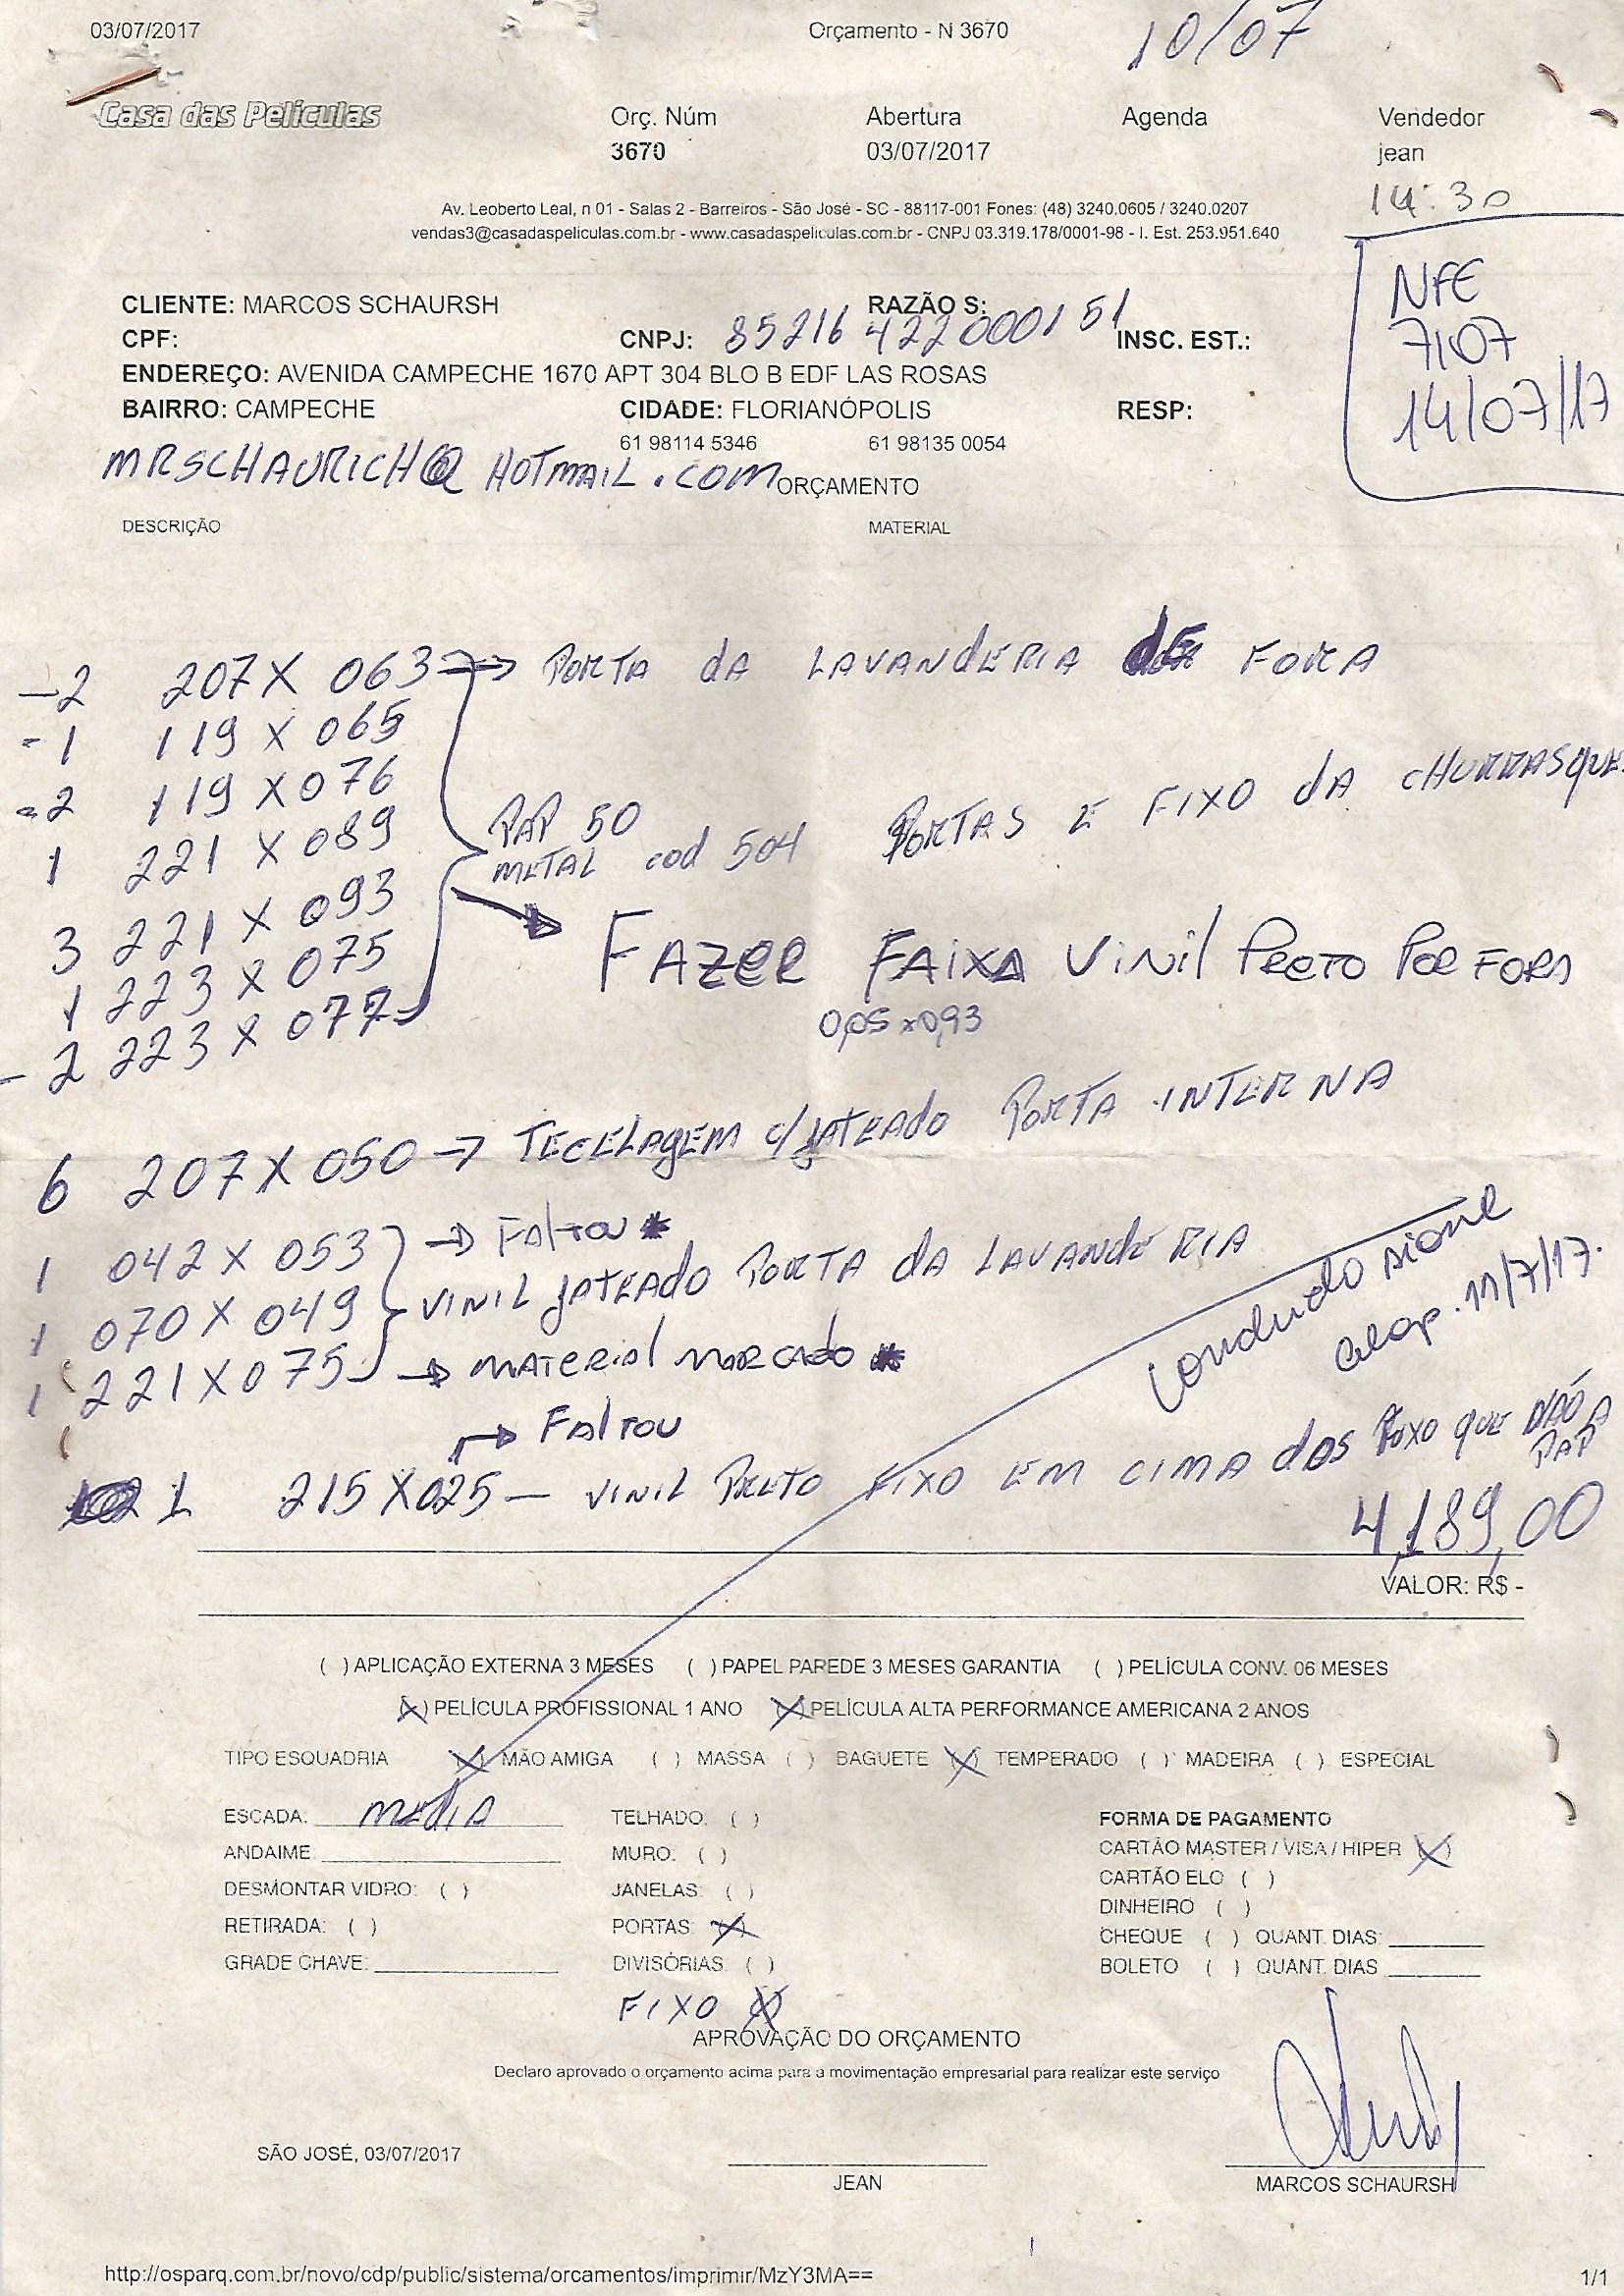 03/07/2017 Orçamento - N 3670 10/07
Casa das Películas Orç. Núm Abertura Agenda Vendedor
3670 03/07/2017 jean
14:30
Av. Leoberto Leal, n 01 - Salas 2 - Barreiros - São José - SC - 88117-001 Fones: (48) 3240.0605 / 3240.0207
vendas3@casadaspeliculas.com.br - www.casadaspeliculas.com.br - CNPJ 03.319.178/0001-98 - I. Est. 253.951.640
NFE
7107
14/07/17
CLIENTE: MARCOS SCHAURSH RAZÃO S:
CPF: CNPJ: 85216422000151 INSC. EST.:
ENDEREÇO: AVENIDA CAMPECHE 1670 APT 304 BLO B EDF LAS ROSAS
BAIRRO: CAMPECHE CIDADE: FLORIANÓPOLIS RESP:
61 98114 5346 61 98135 0054
MRSCHAURICH@HOTMAIL.COM ORÇAMENTO
DESCRIÇÃO MATERIAL
-2 207 X 063 → PORTA DA LAVANDERIA DE FORA
-1 119 X 065
-2 119 X 076
1 221 X 089
PAP 50 PORTAS E FIXO DA CHURRASQUE
METAL cod 504
3 221 X 093
→ FAZER FAIXA VINIL PRETO POR FORA
1 223 X 075
0,05 x 0,93
-2 223 X 077
6 207 X 050 → TECELAGEM C/JATEADO PORTA INTERNA
1 042 X 053 → FALTOU *
1 070 X 049 VINIL JATEADO PORTA DA LAVANDERIA
1 221 X 075 → MATERIAL MARCADO *
11/7/17.
→ FALTOU
1 215 X 025 — VINIL PRETO FIXO EM CIMA DOS QUE NÃO
PAP
4,189,00
VALOR: R$ -
( ) APLICAÇÃO EXTERNA 3 MESES ( ) PAPEL PAREDE 3 MESES GARANTIA ( ) PELÍCULA CONV. 06 MESES
(X) PELÍCULA PROFISSIONAL 1 ANO (X) PELÍCULA ALTA PERFORMANCE AMERICANA 2 ANOS
TIPO ESQUADRIA (X) MÃO AMIGA ( ) MASSA ( ) BAGUETE (X) TEMPERADO ( ) MADEIRA ( ) ESPECIAL
ESCADA: MEDIA TELHADO: ( ) FORMA DE PAGAMENTO
ANDAIME: MURO: ( ) CARTÃO MASTER / VISA / HIPER (X)
DESMONTAR VIDRO: ( ) JANELAS: ( ) CARTÃO ELO ( )
RETIRADA: ( ) PORTAS: (X) DINHEIRO ( )
GRADE CHAVE: DIVISÓRIAS: ( ) CHEQUE ( ) QUANT. DIAS:
BOLETO ( ) QUANT. DIAS
FIXO (X)
APROVAÇÃO DO ORÇAMENTO
Declaro aprovado o orçamento acima para a movimentação empresarial para realizar este serviço
SÃO JOSÉ, 03/07/2017
JEAN MARCOS SCHAURSH
http://osparq.com.br/novo/cdp/public/sistema/orcamentos/imprimir/MzY3MA== 1/1